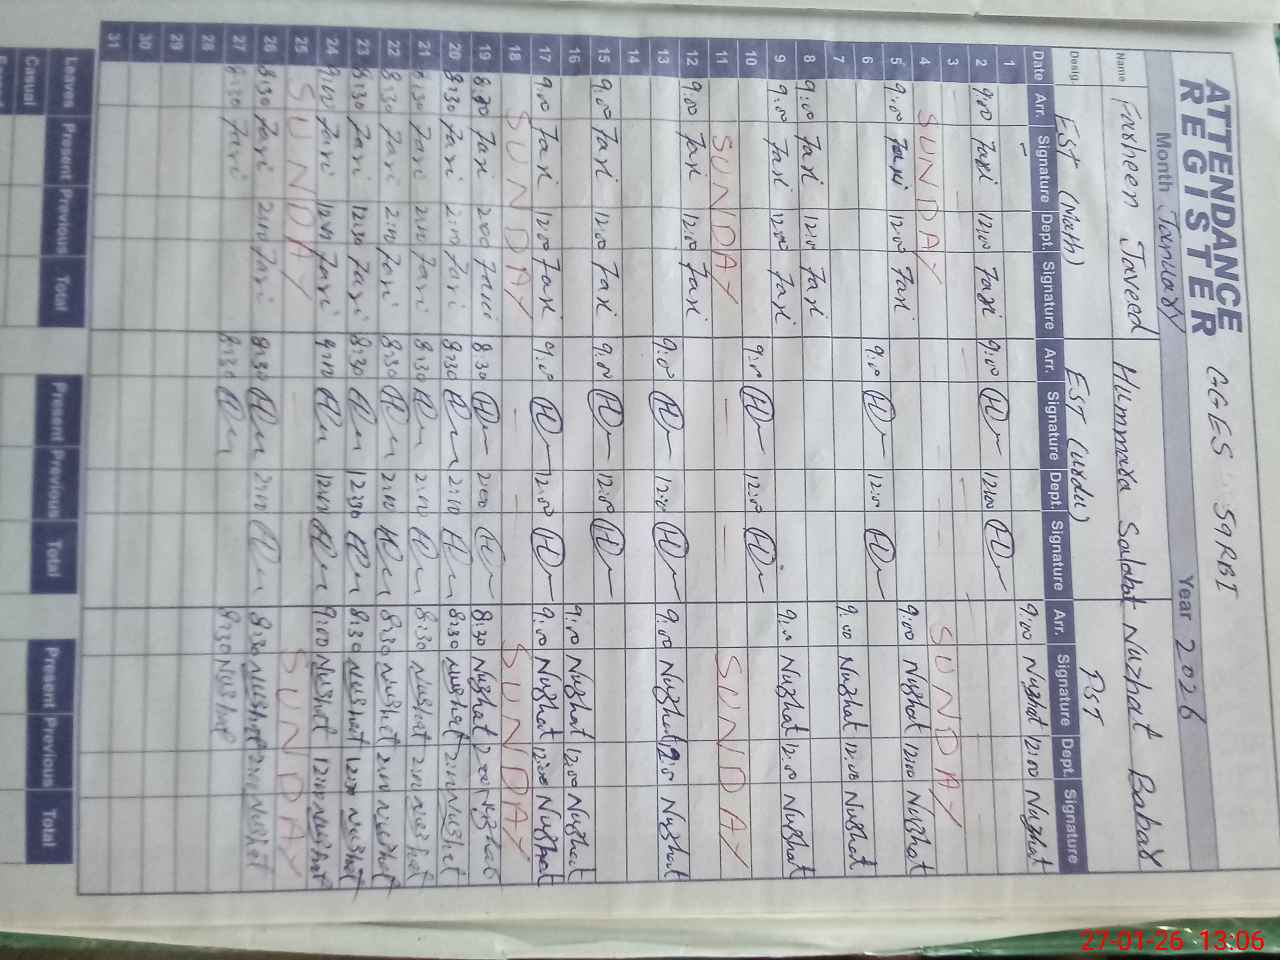 ATTENDANCE REGISTER GGES 59RBI
Month January Year 2026
Name Farheen Javeed Hummara Sadahat Nuzhat Babar
Desig. EST (Math) EST (urdu) PST
Date Arr. Signature Dept. Signature Arr. Signature Dept. Signature Arr. Signature Dept. Signature
1 9:00 Nuzhat 12:00 Nuzhat
2 9:00 Fari 12:00 Fari 9:00 12:00
3
4 SUNDAY SUNDAY
5 9:00 Fari 12:00 Fari 9:00 Nuzhat 12:00 Nuzhat
6 9:00 12:00
7 9:00 Nuzhat 12:00 Nuzhat
8 9:00 Fari 12:00 Fari
9 9:00 Fari 12:00 Fari 9:00 Nuzhat 12:00 Nuzhat
10 9:00 12:00
11 SUNDAY SUNDAY
12 9:00 Fari 12:00 Fari
13 9:00 12:00 9:00 Nuzhat 12:00 Nuzhat
14
15 9:00 Fari 12:00 Fari 9:00 12:00
16 9:00 Nuzhat 12:00 Nuzhat
17 9:00 Fari 12:00 Fari 9:00 12:00 9:00 Nuzhat 12:00 Nuzhat
18 SUNDAY SUNDAY
19 8:30 Fari 2:00 Fari 8:30 2:00 8:30 Nuzhat 2:00 Nuzhat
20 8:30 Fari 2:00 Fari 8:30 2:10 8:30 Nuzhat 2:00 Nuzhat
21 8:30 Fari 2:00 Fari 8:30 2:00 8:30 Nuzhat 2:00 Nuzhat
22 8:30 Fari 2:00 Fari 8:30 2:00 8:30 Nuzhat 2:00 Nuzhat
23 8:30 Fari 12:30 Fari 8:30 12:30 8:30 Nuzhat 12:30 Nuzhat
24 9:00 Fari 12:00 Fari 9:00 12:00 9:00 Nuzhat 12:00 Nuzhat
25 SUNDAY SUNDAY
26 8:30 Fari 2:00 Fari 8:30 2:00 8:30 Nuzhat 2:00 Nuzhat
27 8:30 Fari 8:30 8:30 Nuzhat
28
29
30
31
Leaves Present Previous Total Present Previous Total Present Previous Total
Casual
27-01-26 13:06